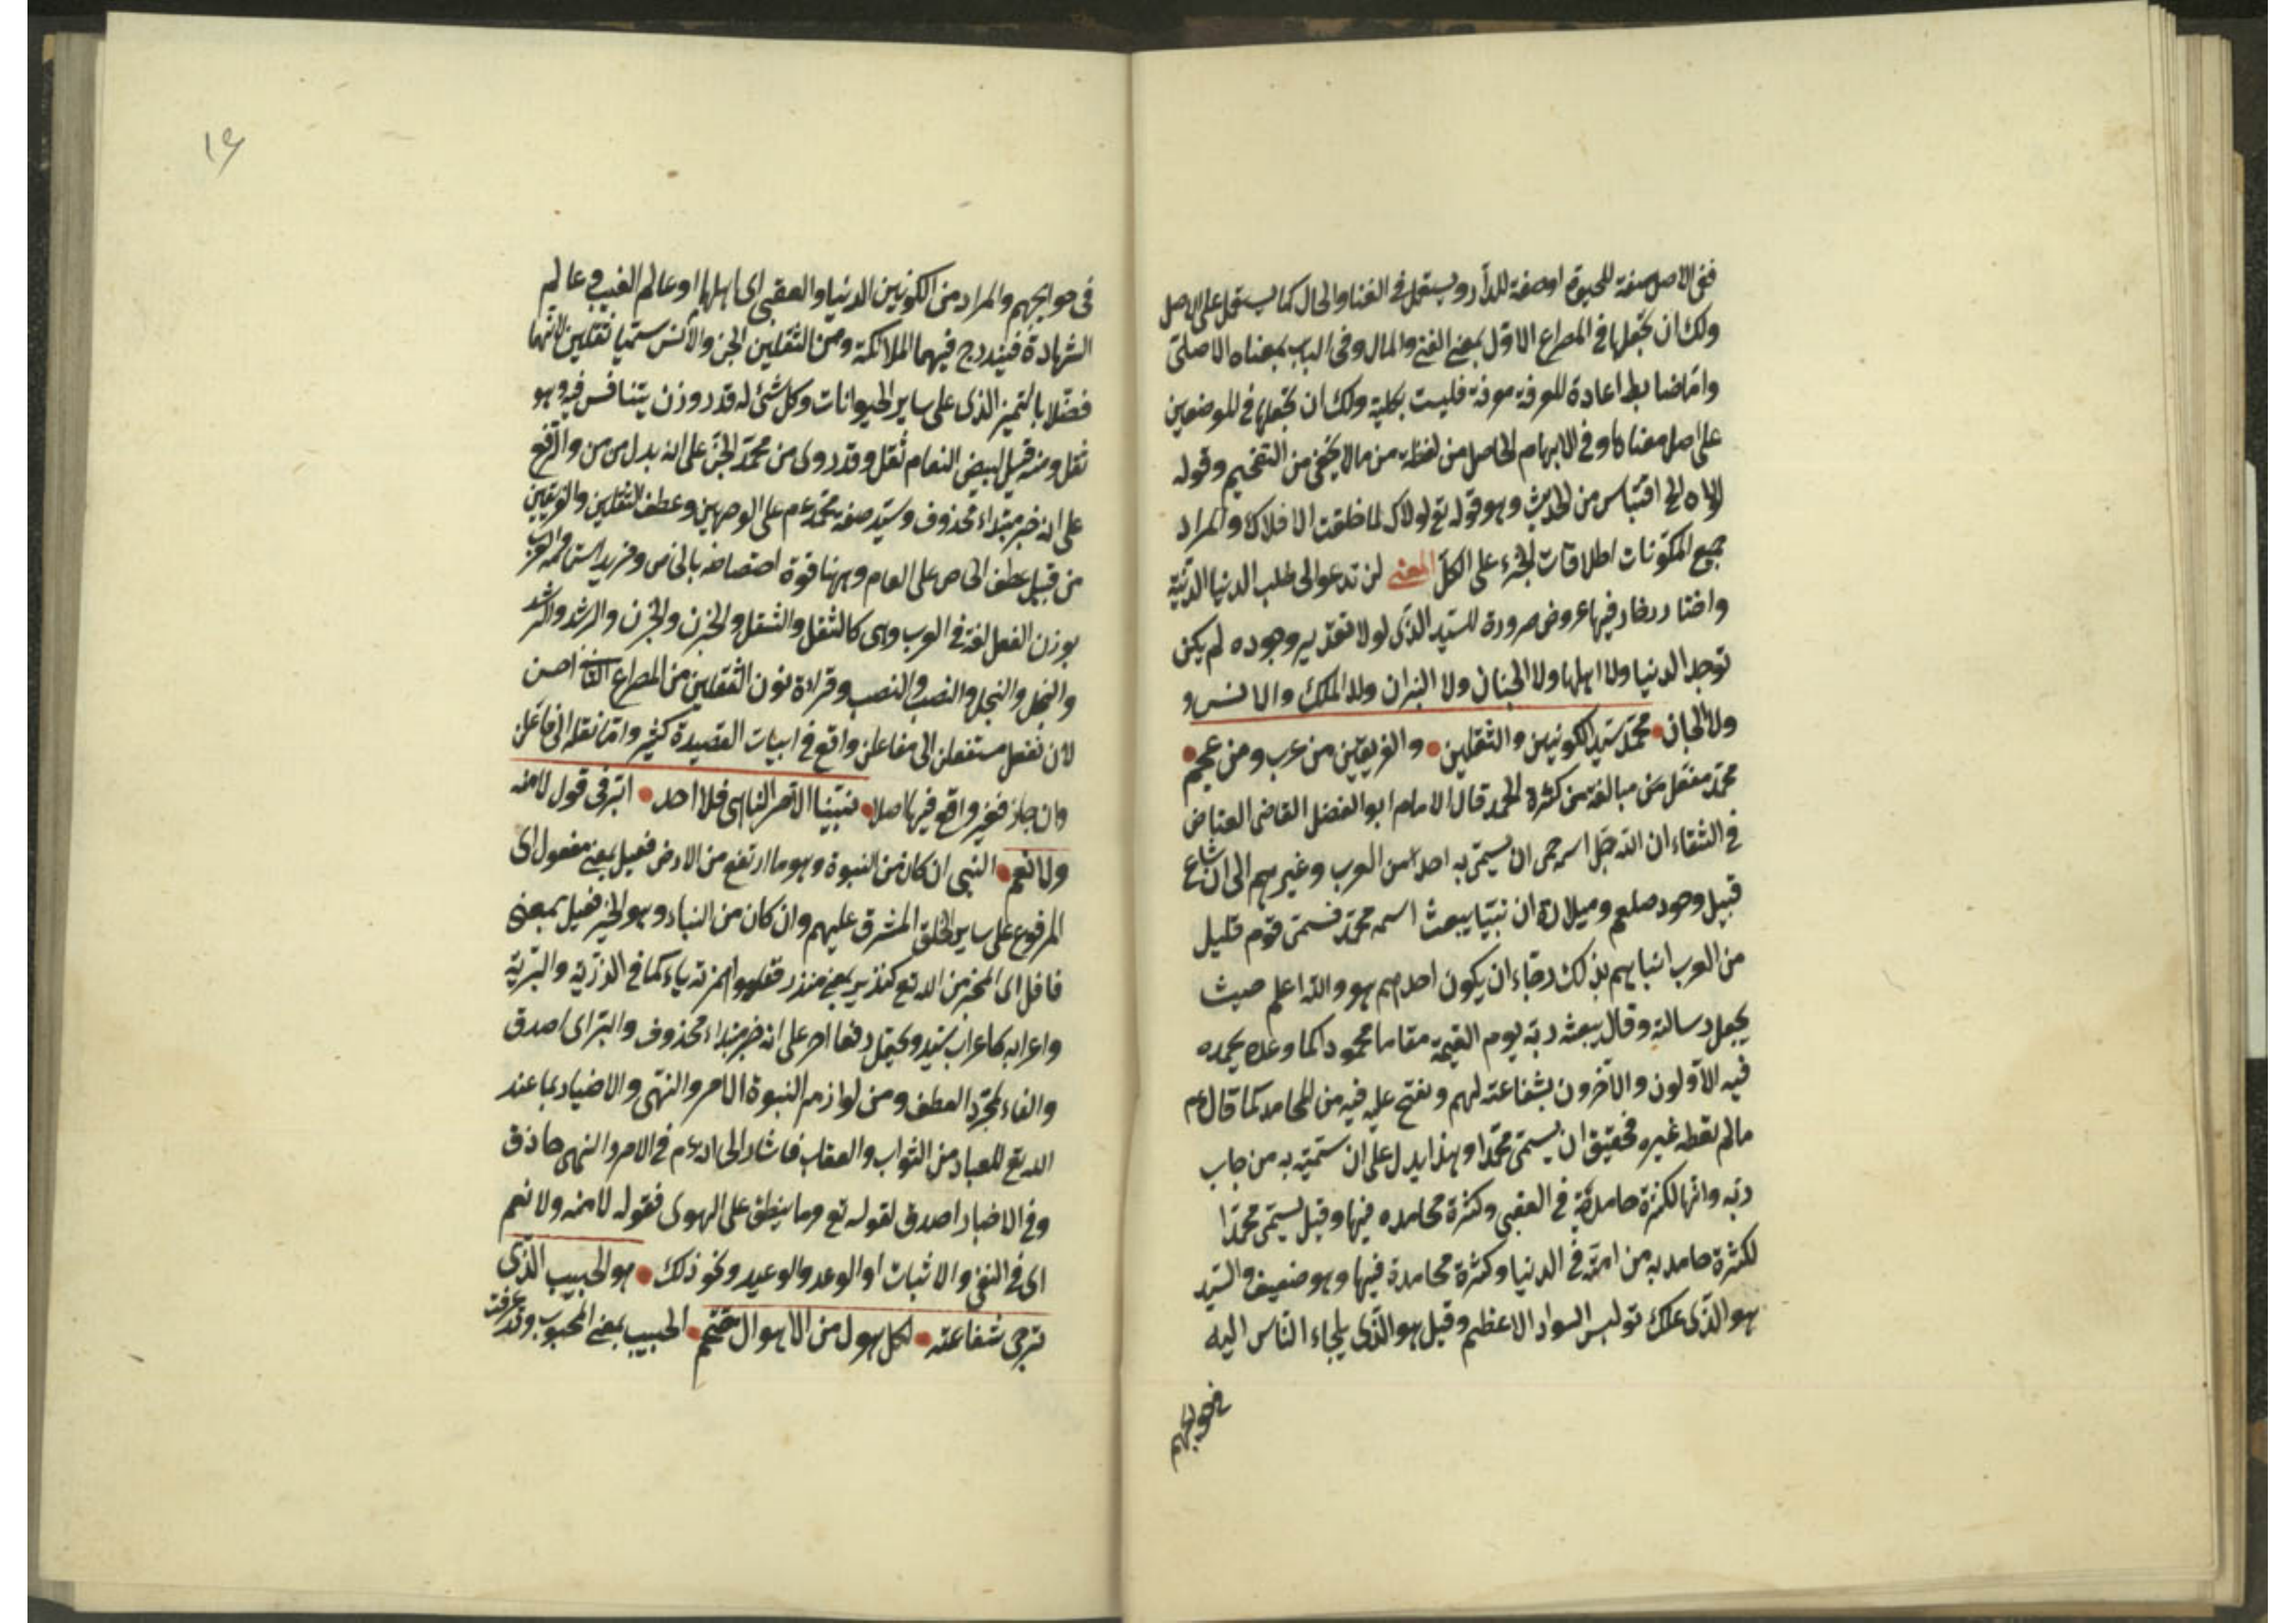 ففى الاصل صفة للحيوة او صفة للدار ويستعمل فى الغنا والحال كما يستعمل على الاصل
ولك ان تجعلها فى المصراع الاول بمعنى الغنى والمال وفى الباب بمعناه الاصلى
واما ضابط اعادة المعرفة معرفة فليست بكلية ولك ان تجعلها فى الموضعين
على اصل معناها وفى الابهام الحاصل من لفظة من مالا يخفى من التفخيم وقوله
لولاه الخ اقتباس من الحديث وهو قوله تع لولاك لما خلقت الافلاك والمراد
جميع المكونات اطلاقات لجزء على الكل المعنى لن تدعو الى طلب الدنيا الدنية
واختار فيها عروض ضرورة للسيد الذى لولا تقدير وجوده لم يكن
توجد الدنيا ولا اهلها ولا الجنان ولا النيران ولا الملك والانس و
ولا الجان محمد سيد الكونين والثقلين والفريقين من عرب ومن عجم
محمد مفعل من مبالغة من كثرة الحمد قال الامام ابو الفضل القاضى العياض
فى الشفاء ان الله جل اسمه حمى ان يسمى به احدا من العرب وغيرهم الى ان شاع
قبيل وجود صلعم وميلاده ان نبيا يبعث اسمه محمد فسمى قوم قليل
من العرب ابنا بهم بذلك رجاء ان يكون احدهم هو والله اعلم حيث
يجعل رسالته وقال يبعثه ربه يوم القيمة مقاما محمودا كما وعده يحمده
فيه الاولون والاخرون بشفاعته لهم ونفتح عليه فيه من المحامد كما قال عم
مالم يعطه غيره فحقيق ان يسمى محمدا وهذا يدل على ان سميته به من جاب
ربه وانها لكثرة حامديه فى العقبى وكثرة محامده فيها وقيل يسمى محمدا
لكثرة حامديه من امته فى الدنيا وكثرة محامدة فيها وهو ضعيف والسيد
هو الذى علك تولبس السواد الاعظم وقيل هو الذى يلجاء الناس اليه
فى حوايجهم
١٤
فى حوايجهم والمراد من الكونين الدنيا والعقبى اى اهلها او عالم الغيب و عالم
الشهادة فيندرج فيهما الملائكة ومن الثقلين الجن والانس سميا ثقلين لانهما
فضلا بالتميز الذى على ساير الحيوانات وكل شئ له قدر وزن يتنافس فيه وهو
ثقل ومنه قيل لبيض النعام ثقل وقد روى من محمد الجر على انه بدل من من والرفع
على انه خبر مبتداء محذوف وسيد صفة محمد عم على الوجهين وعطف الثقلين والفريقين
من قبيل عطف الخاص على العام وههنا قوة اختصاصه بالخاص ومزيد اهتمام والعرب
بوزن الفعل لغة فى العرب وهى كالثقل والثقل والحزن والحزن والرشد والرشد
والبخل والبخل والنصب والنصب وقراءة نون الثقلين من المصراع الثانى احسن
لان نفعل مستفعلن الى مفاعلن واقع فى ابيات القصيدة كثير واما نقله الى فاعلن
وان جاز فغير واقع فيها اصلا نبينا الامر الناهى فلا احد ابر فى قول لا منه
ولا نعم النبى ان كان من النبوة وهو ما ارتفع من الارض فعيل بمعنى مفعول اى
المرفوع على ساير الخلق المشرف عليهم وان كان من النباء وهو الخبر فعيل بمعنى
فاعل اى المخبر من الله تع كنذير بمعنى منذر فقلبوا همزته ياء كما فى الذرية والبرية
واعرابه كاعراب سيد ويحتمل رفعا اخر على انه خبر مبتداء محذوف والبر اى اصدق
والفاء لمجرد العطف ومن لوازم النبوة الامر والنهى والاخبار بما عند
الله تع للعباد من الثواب والعقاب فاشار الى انه عم فى الامر والنهى حاذق
وفى الاخبار اصدق لقوله تع وما ينطق على الهوى فقوله لا منه ولا نعم
اى فى النفى والاثبات او الوعد والوعيد ونحو ذلك هو الحبيب الذى
ترجى شفاعته لكل هول من الاهوال مقتحم الحبيب بمعنى المحبوب وقد عرفت